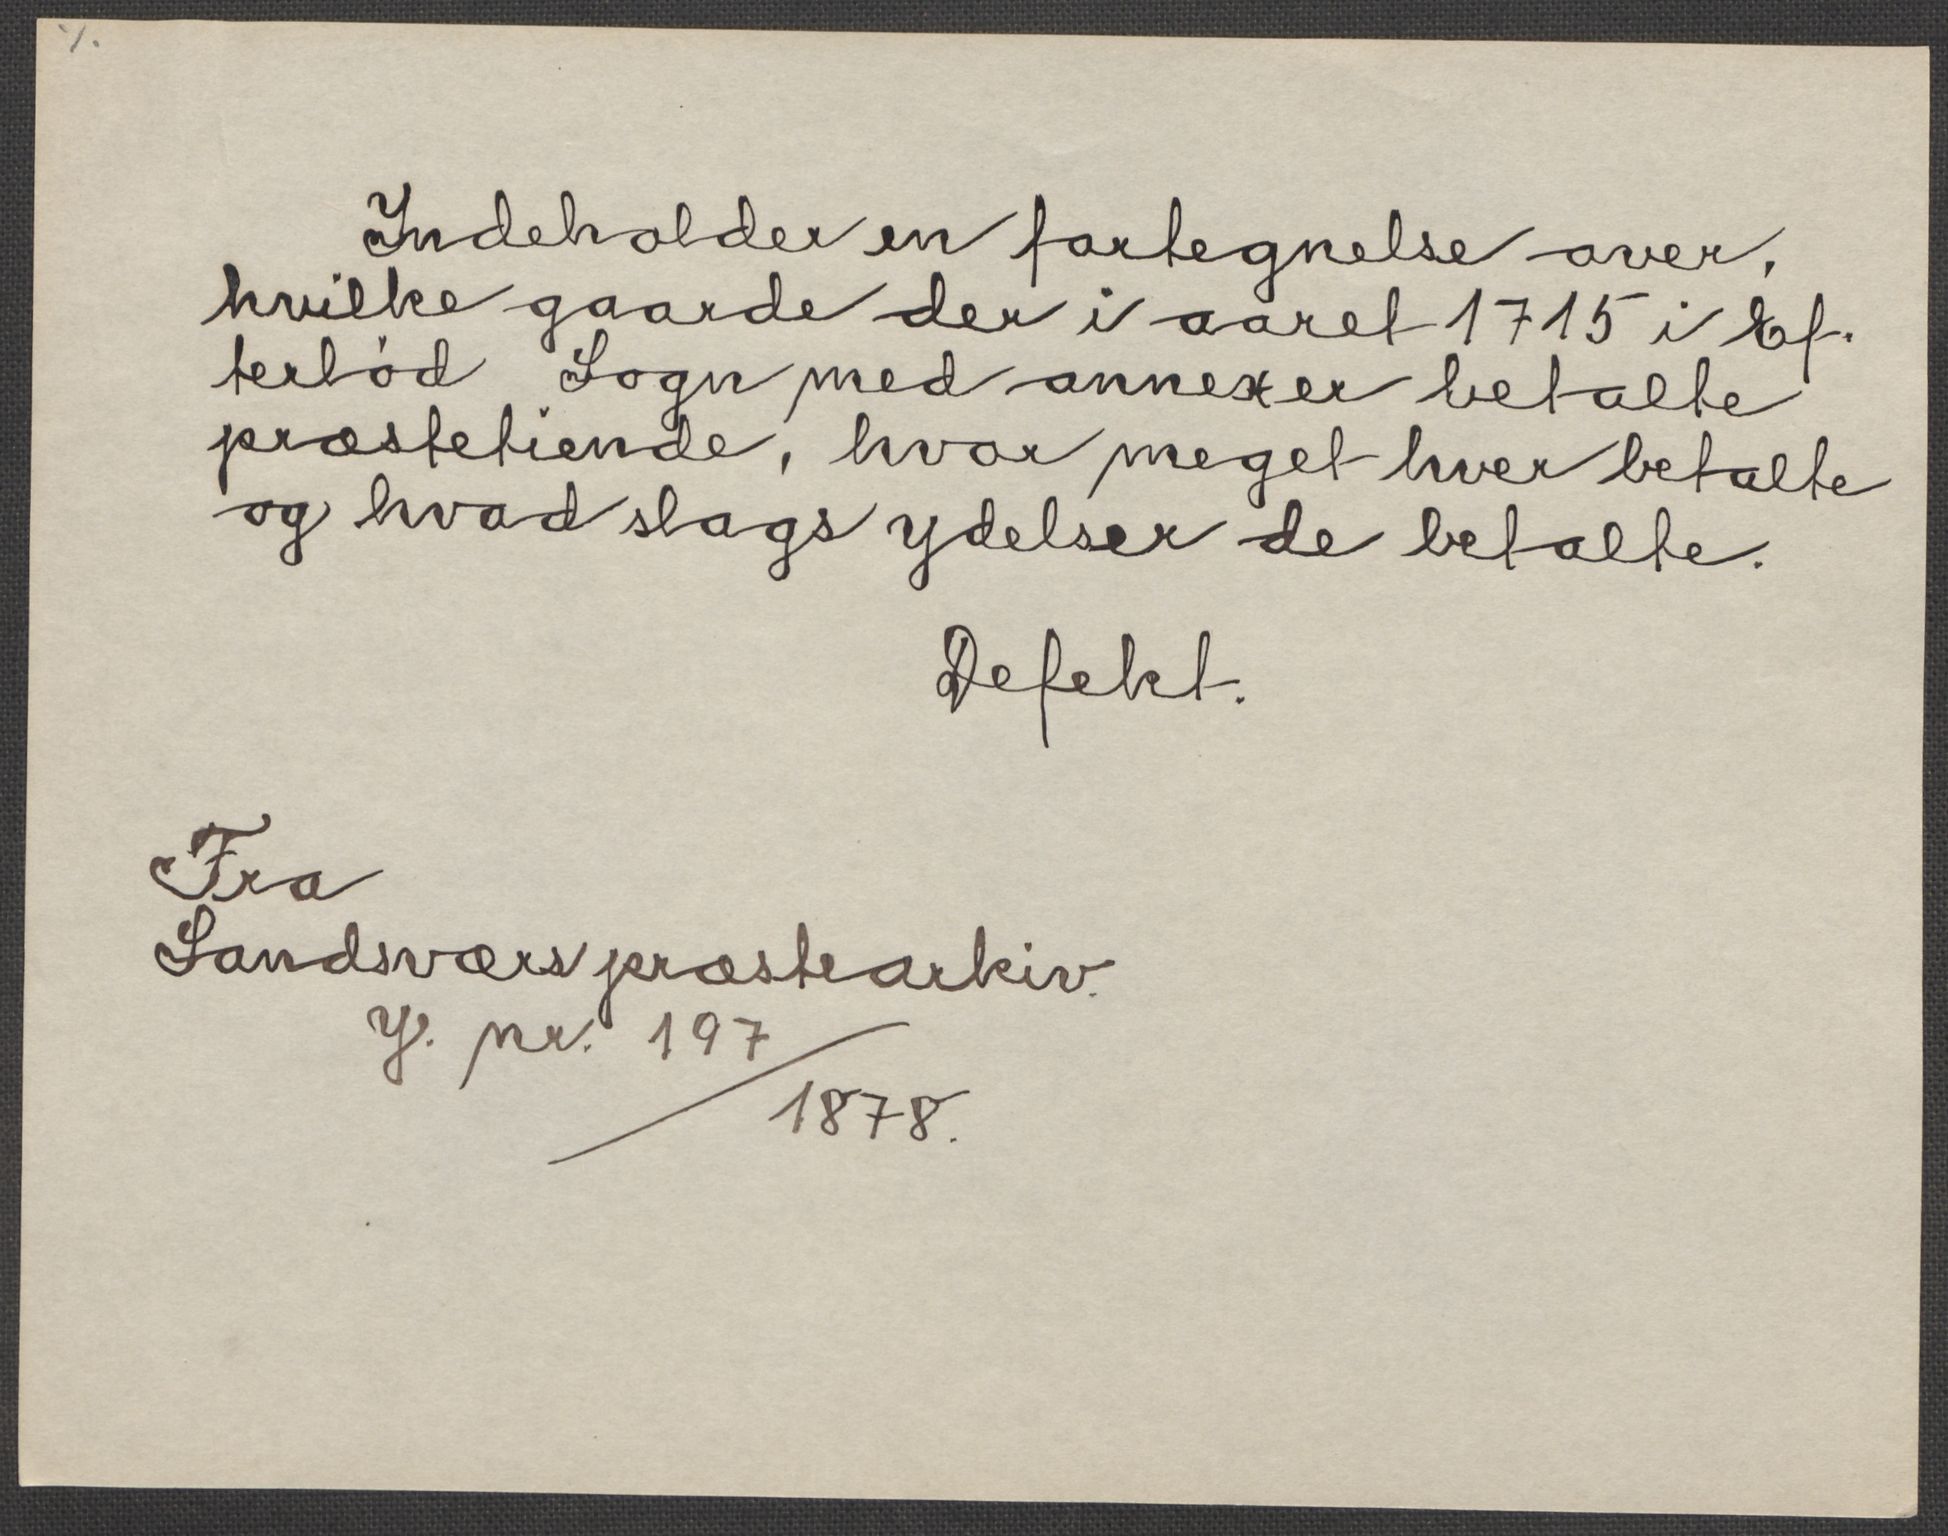 Indeholder en fortegnelse over,
hvilke gaarde der i aaret 1715 i Ef-
terlød Sogn med annexer betalte
præstetiende, hvor meget hver betalte
og hvad slags ydelser de betalte.
Defekt.
Fra
Sandsværs præstearkiv.
J. nr. 197
1878.